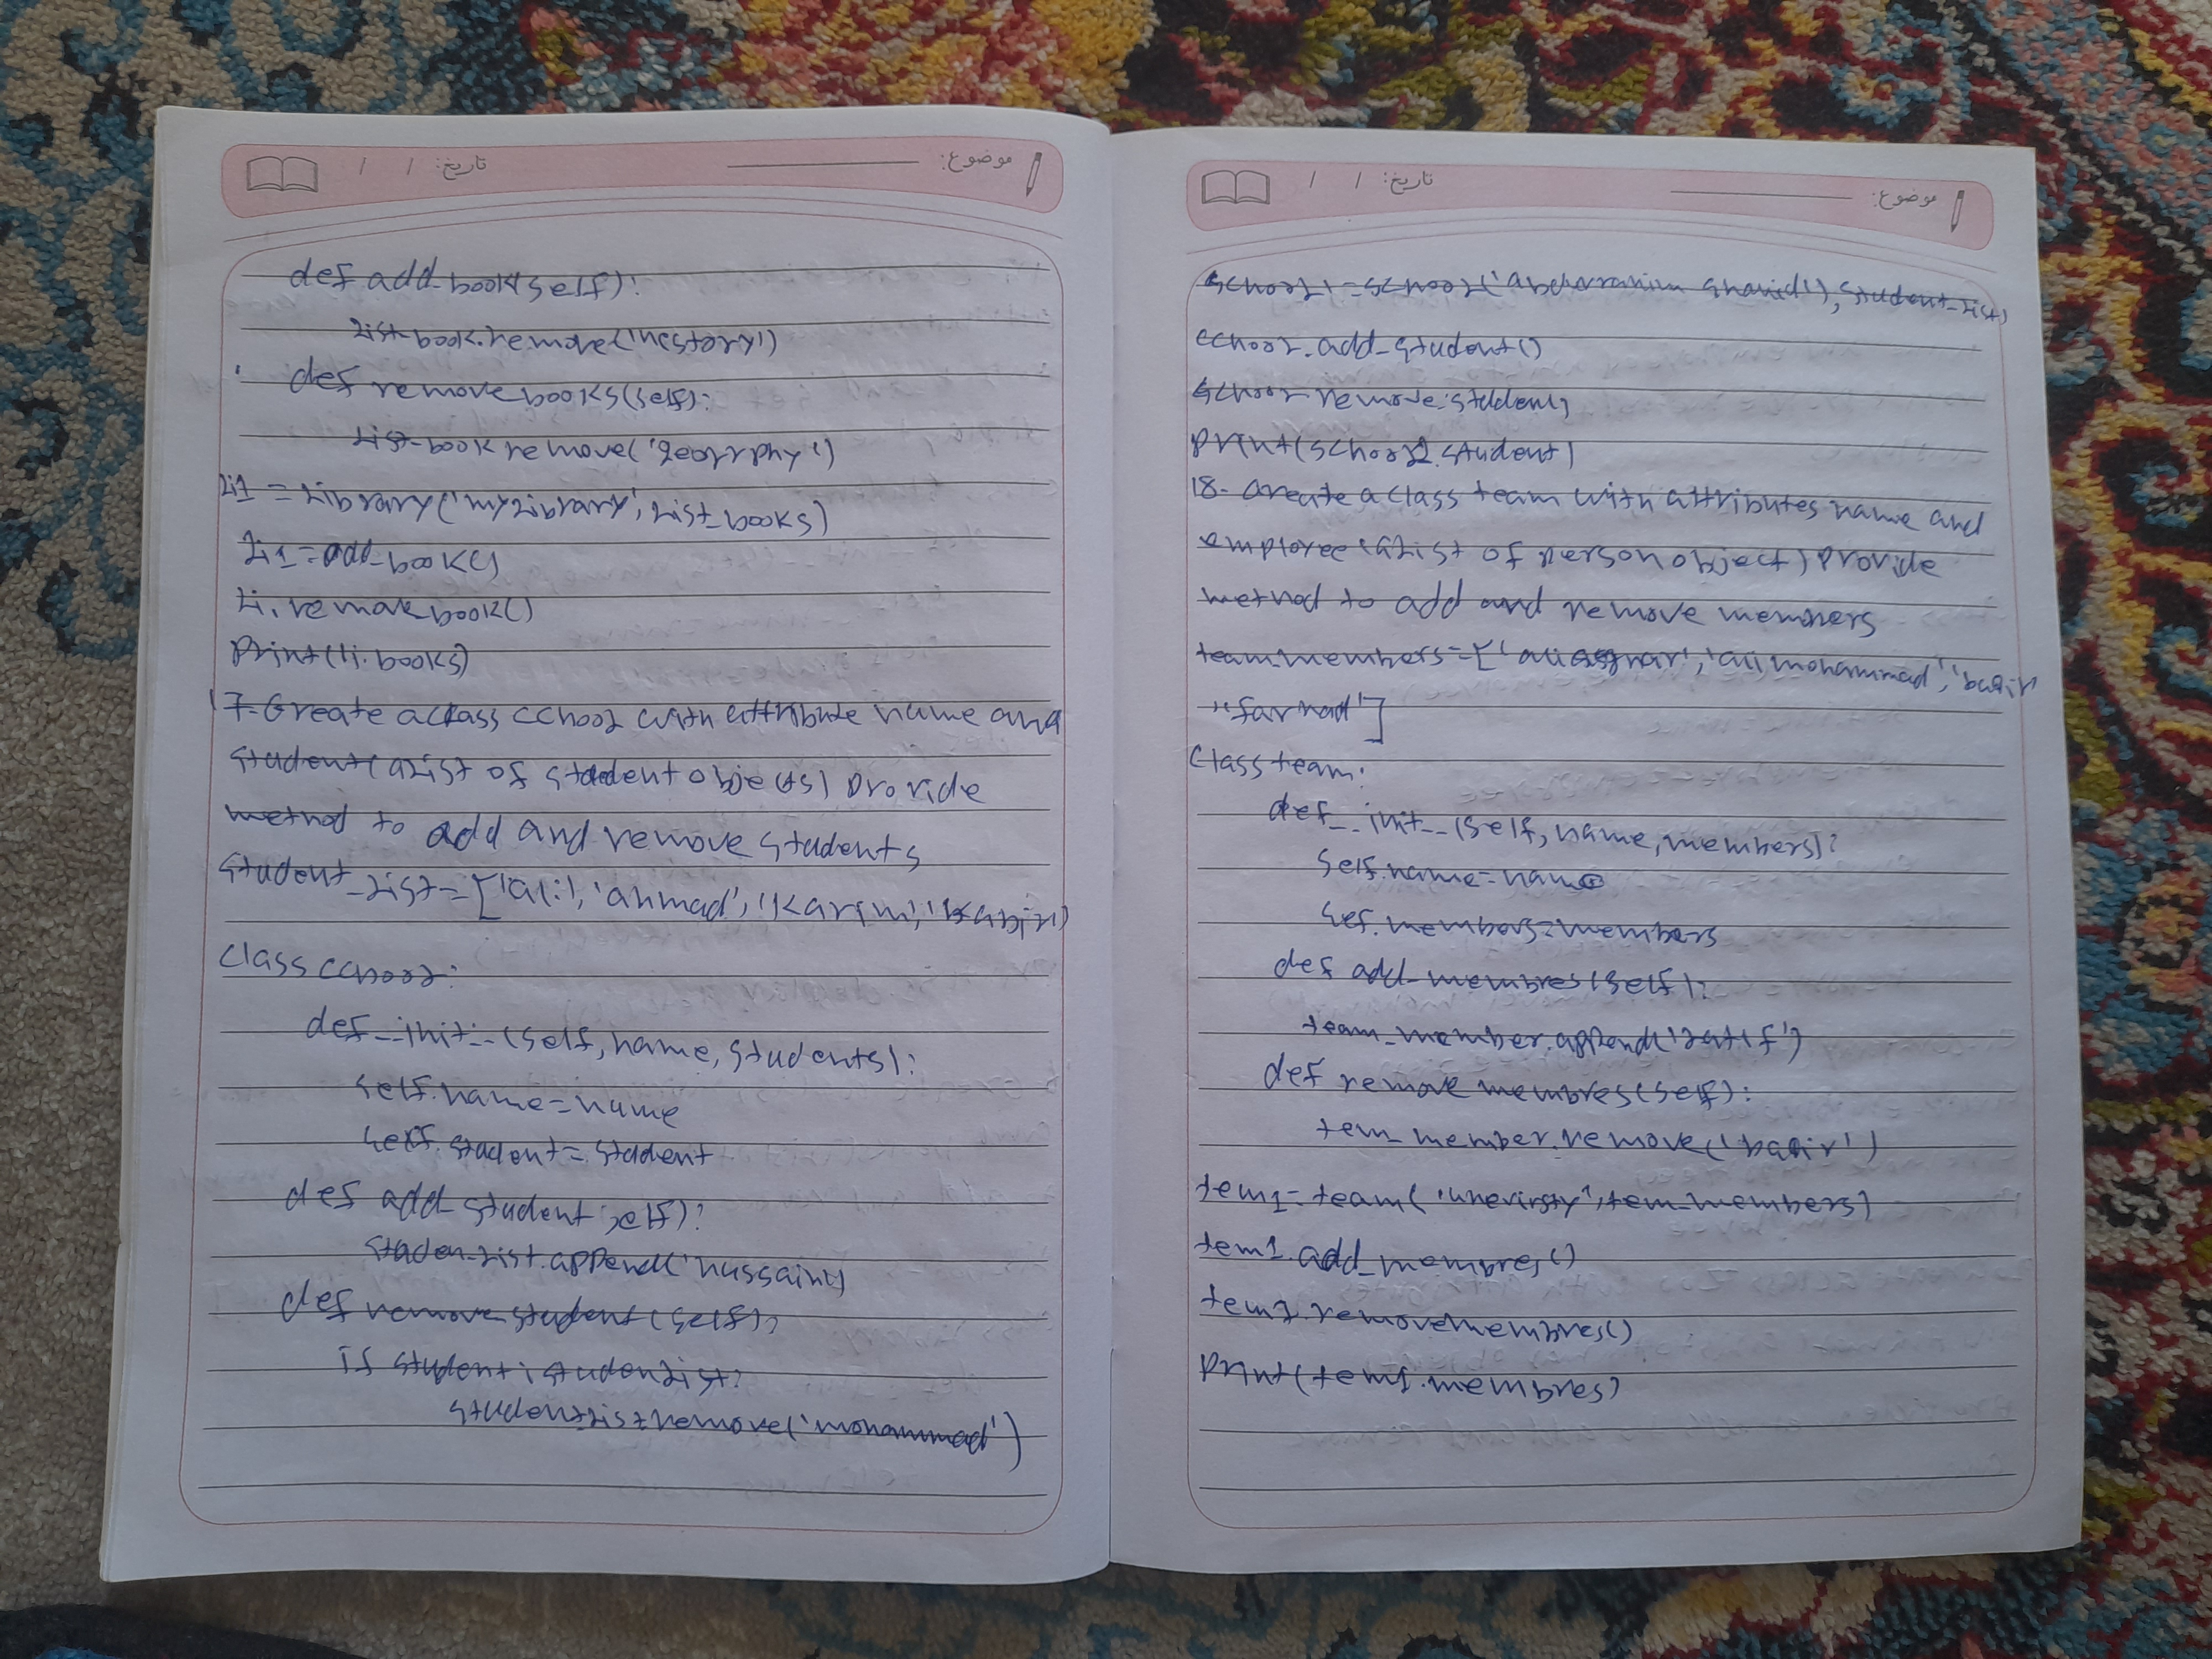 تاریخ: / / موضوع:
def add-book(self):
list-book.remove('hestory')
def remove-books(self):
list-book remove('georrphy')
li1 = library('my library', list_books)
li1 = add-book()
li.remove-book()
print(li.books)
17-Create a class cchool with attribute name and
student(a list of student objects) provide
method to add and remove students
student_list=['ali', 'ahmad',
class cchool:
def __init__(self, name, students):
self.name=name
self.student=student
def add-student(self):
student-list.append('hussain')
def remove-student(self):
if student in student list:
student list.remove('mohammad')
تاریخ: / / موضوع:
school 1=school('abdurrahim shahid'), student-list)
cchool.add-student()
school-remove.student()
print(school2.student)
18-create a class team with attributes name and
employee (a list of person object) provide
method to add and remove members
team members=['ali asgar', 'ali mohammad', 'basir
"farhad"]
class team:
def __init__(self, name, members):
self.name=name
self.members=members
def add-membres(self):
team_member.append('latif')
def remove membres(self):
tem_member.remove('basir')
tem1=team('unerisy', tem-members)
tem1.add_membres()
tem1.removemembres()
print(tem1.membres)